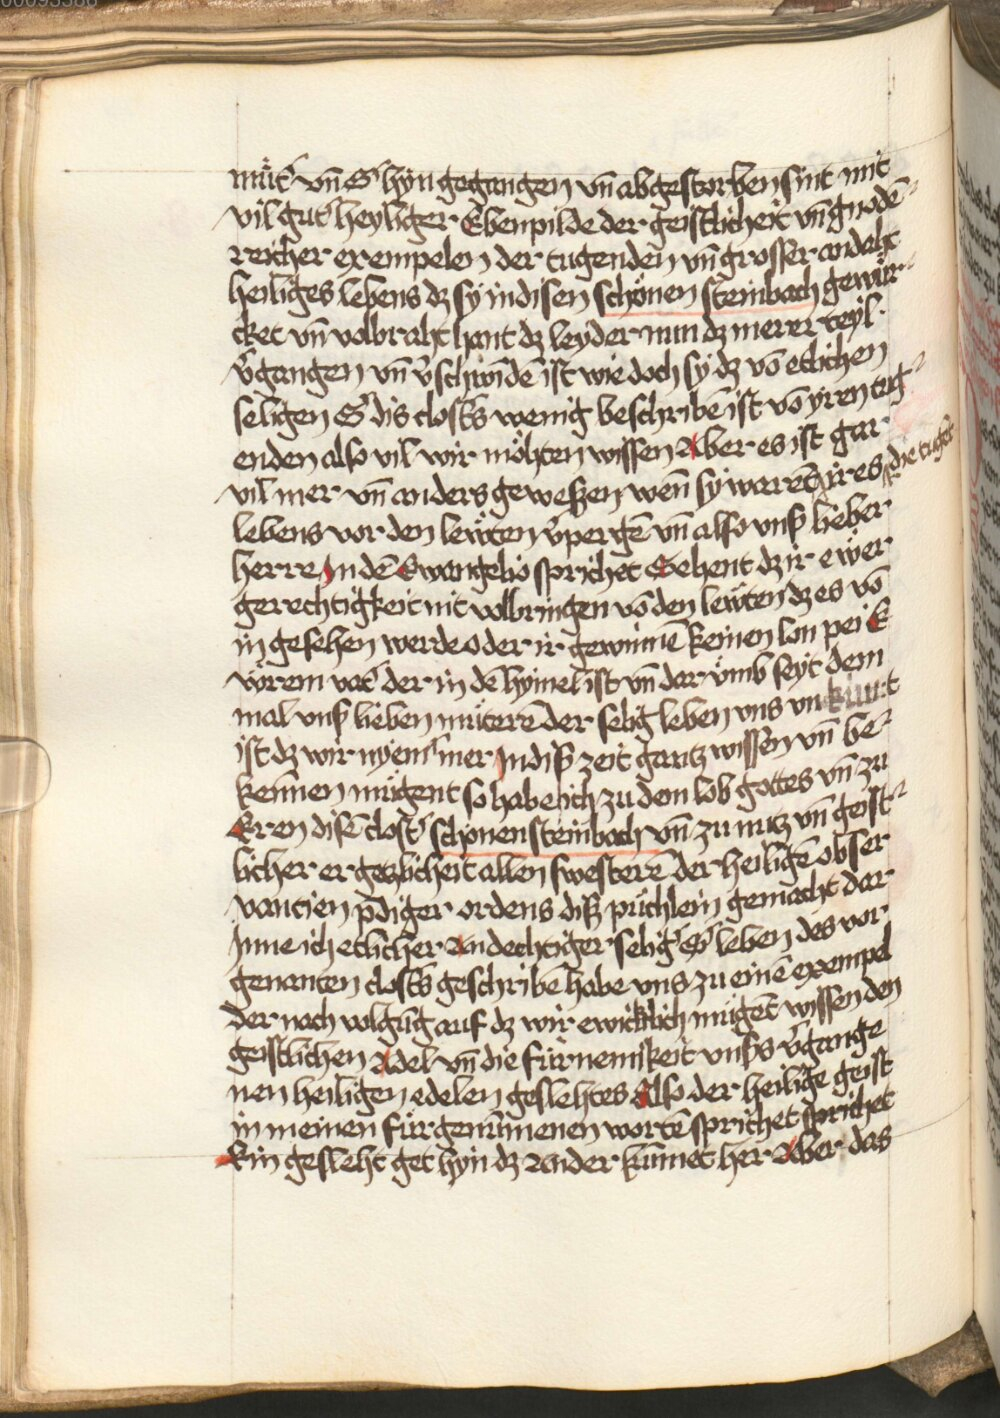 müt͛ vn̄ S͛ hyn gegangen vn̄ abgestorben sint mit
vil gut͛ heyliger Ebenpilde der geistlicheit vn̄ gnodē
reicher exempelen der tugenden vn̄ grosser andaht
heiliges lebens dz sy in disen schönen steinbach gewür
cket vn̄ volbraht hant dz leyder nun dz merer teyl
v͛gangen vn̄ v͛schwindē ist wie doch sy dz vō etlichen
seligen S͛ dis closters wenig beschribē ist vō yren tug
enden also vil wir möhten wissen Aber es ist gar
vil mer vn̄ anders geweszen wen̄ sy warent ires die tuget
lebens vor den lewten v͛pergē vn̄ also vns͛ lieber
herre In dē Ewangelio sprichet Sehent dz ir ewer
gerechtigkeit nit volbringen vō den lewten dz es vō
in gesehen werde oder ir gewinnē keinen lon pei E
wrem vat͛ der in dē hymel ist vn̄ dar vmb seyt dem
mal vns͛ lieben müterē der selig leben vns vnkunt
ist dz wir nyem͛ mer In dis͛ zeit gantz wissen vn̄ be
kennen mügent so habe ich zu dem lob gottes vn̄ zu
Eren disē clost͛ schonensteinbach vn̄ zu nutz vn̄ geist
licher ergetzlicheit allen swesterē der heiligē obser
vancien p̄diger ordens disz püchlein gemacht dar
Inne ich etlicher Andechtiger selig͛ S͛ leben des vor
genanten closters geschribē habe vns zu einē exempel
der noch volgūg auf dz wir ewicklich mügēt wissen den
geistlichen Adel vn̄ die fürnemikeit vns͛s v͛gange
nen heiligen edelen geslehtes Also der heilige geist
in meinen fürgenūmenen wortē sprichet sprichet
Ein gesleht get hyn dz Ander kūmet her Aber das